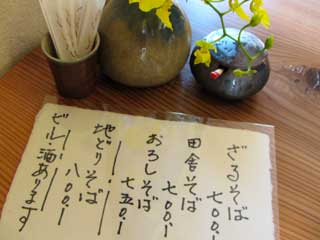 ざるそば
七〇〇、ー
田舎そば
七〇〇、ー
おろしそば
七五〇、ー
地どりそば
八〇〇、ー
ビール・酒あります